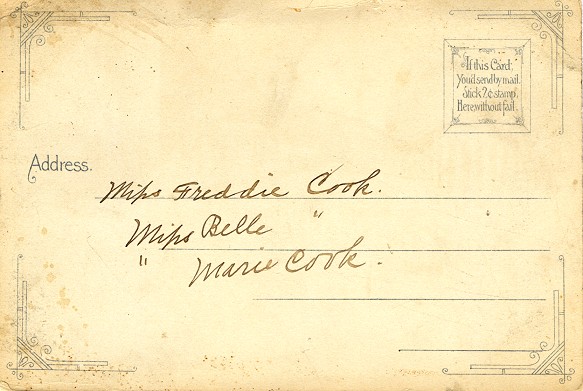 If this Card,
You'd send by mail
Stick 2¢ stamp,
Here, without fail.
Address.
Miss Freddie Cook.
Miss Belle "
" Marie Cook.